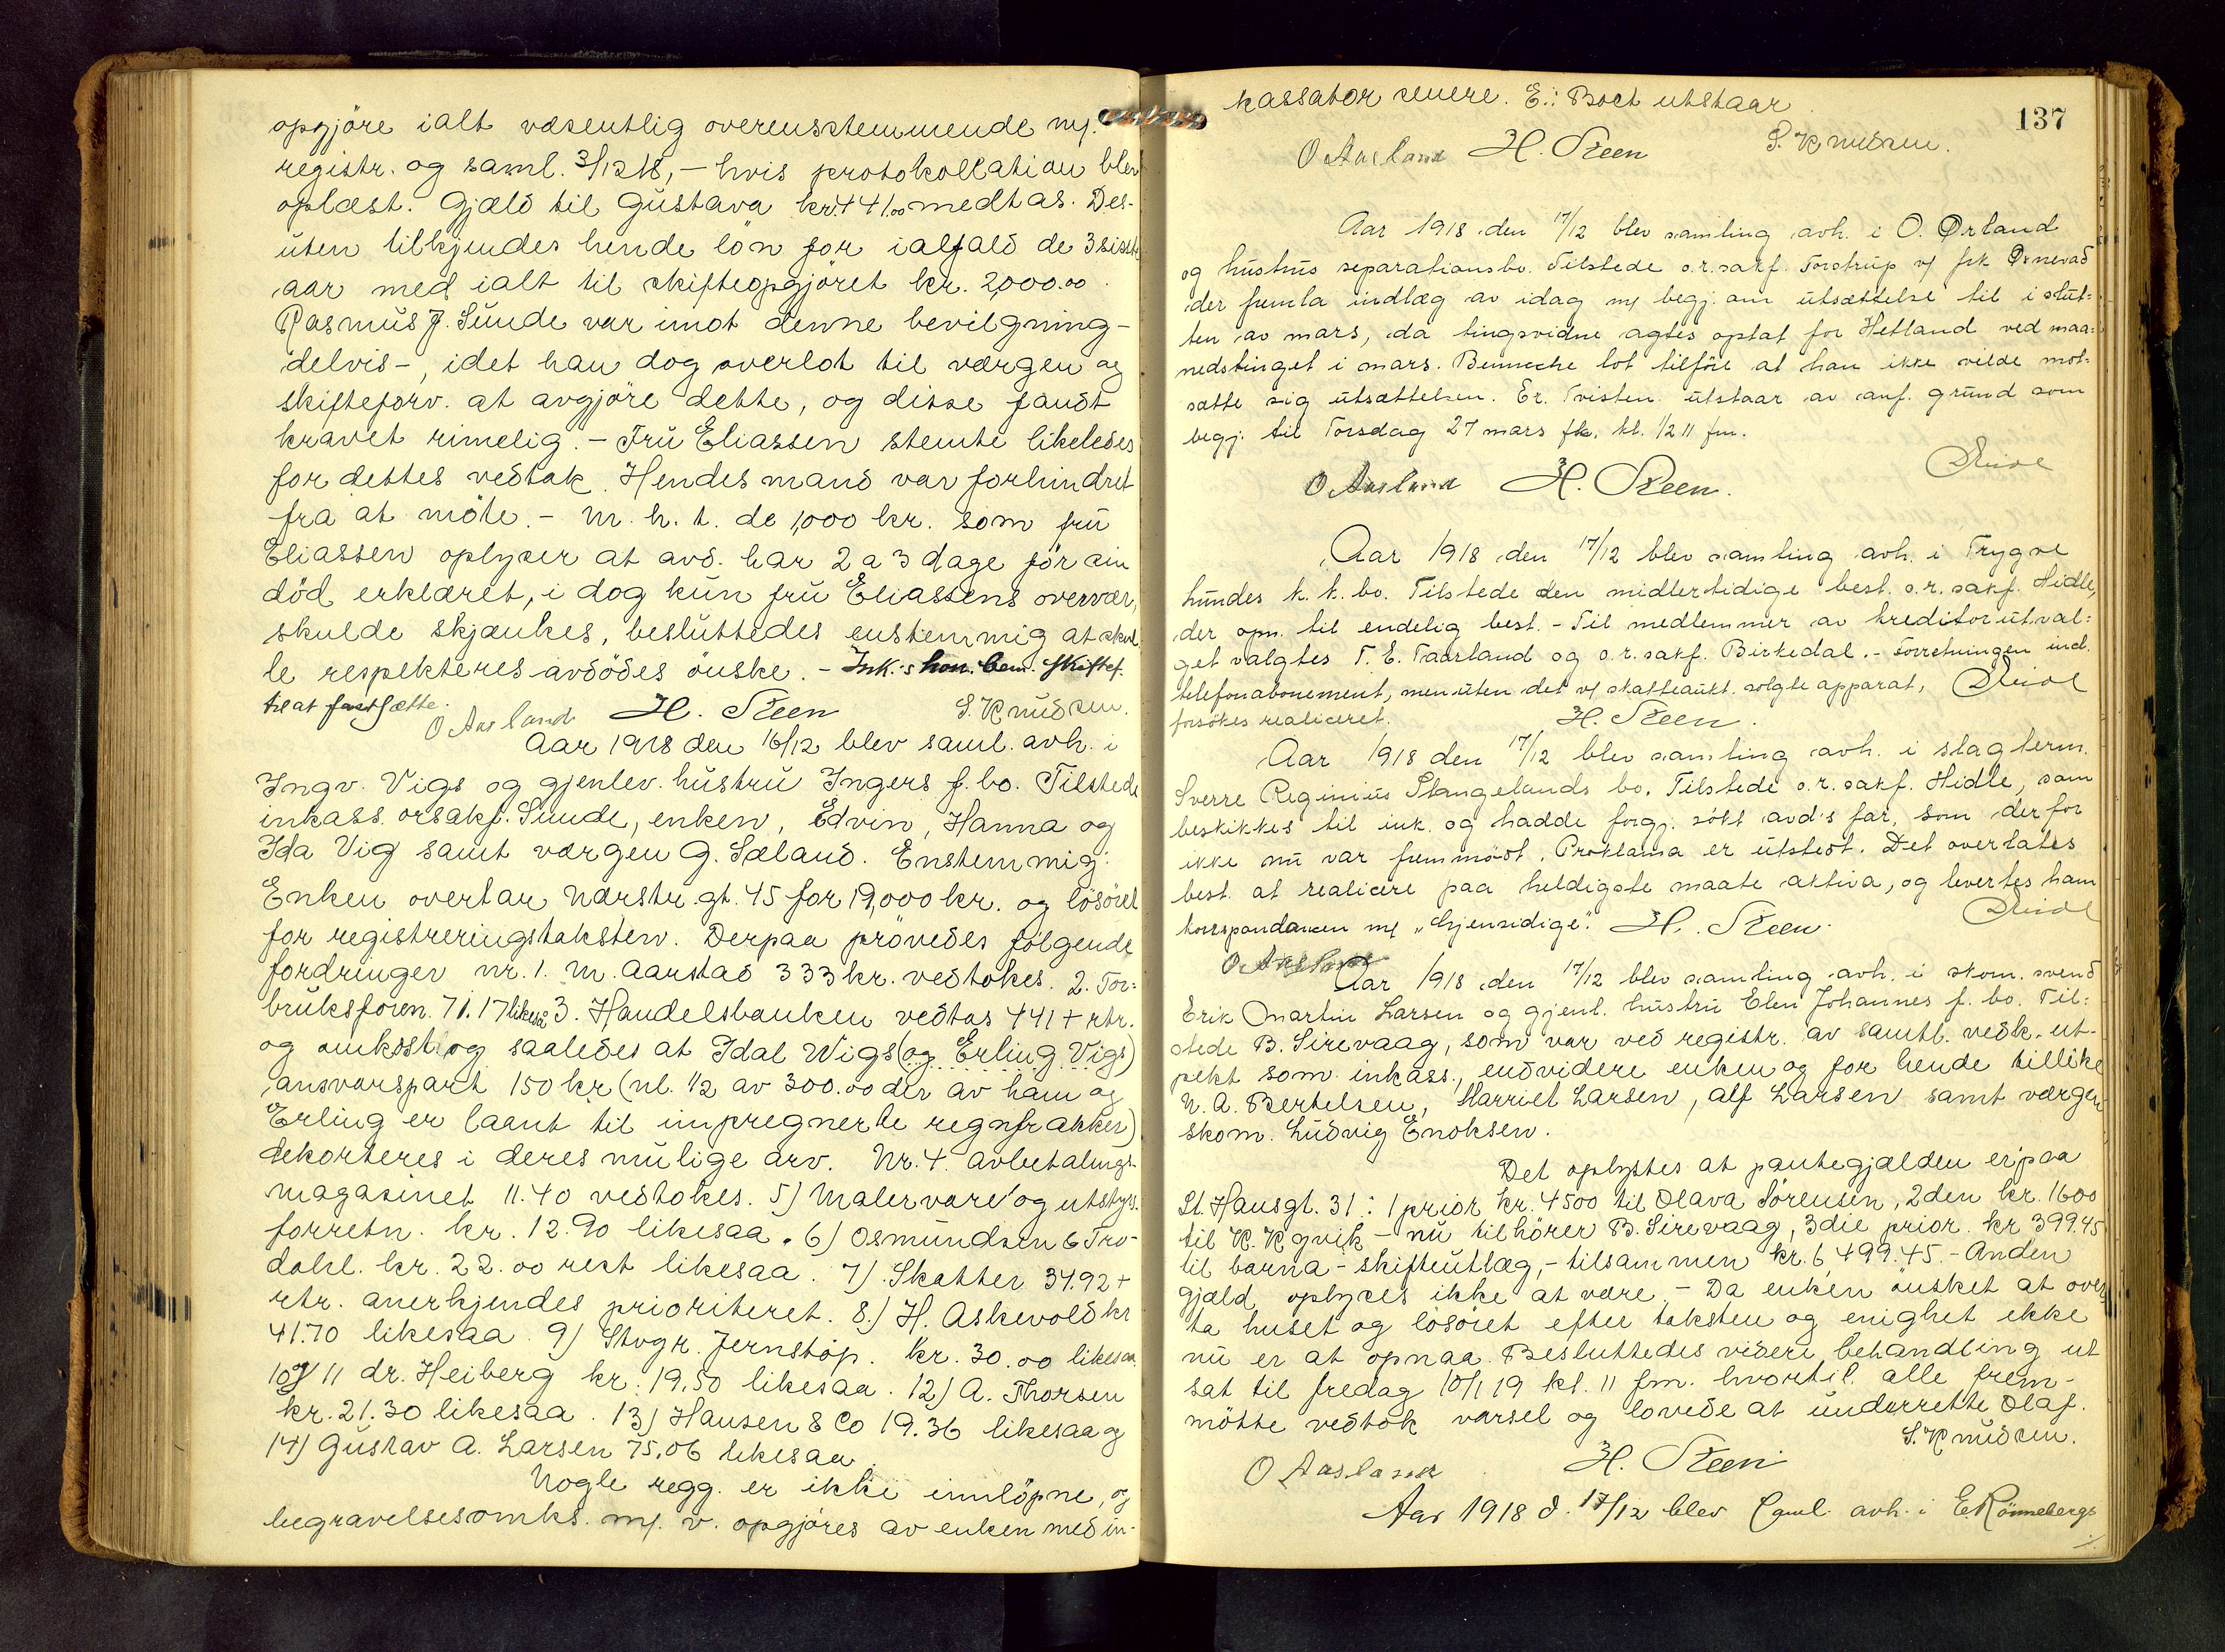 opgjöre ialt væsentlig overensstemmende m/.
registr. og saml. 3/12 18, – hvis protokollation blev
oplæst. Gjæld til Gustava kr. 441.00 medtas. Des-
uten tilkjendes hende lön for ialfald de 3 siste
aar med ialt til skifteopgjöret kr. 2,000.00.
Rasmus J. Sunde var imot denne bevilgning –
delvis –, idet han dog overlot til værgen og
skifteforv. at avgjöre dette, og disse fandt
kravet rimelig. – Fru Eliassen stemte likeledes
for dettes vedtak. Hendes mand var forhindret
fra at möte. – M. h. t. de 1,000 kr. som fru
Eliassen oplyser at avd. har 2 a 3 dage för sin
död erklæret, i dog kun fru Eliassens overvær,
skulde skjænkes, besluttedes enstemmig at skul
le respekteres avdödes önske. – Ink.'s hon. bem. skiftef.
til at fastsætte.
O Aasland H. Steen S. Knudsen.
Aar 1918 den 16/12 blev saml. avh. i
Ingv. Vigs og gjenlev. hustru Ingers f. bo. Tilstede
inkass. orsakf. Sunde, enken, Edvin, Hanna og
Ida Vig samt værgen G. Sæland. Enstemmig:
Enken overtar Nærstr. gt. 45 for 19,000 kr. og lösöret
for registreringstaksten. Derpaa prövedes fölgende
fordringer nr. 1. M. Aarstad 333 kr. vedtokes. 2. For-
bruksforen. 71.17 likeså 3. Handelsbanken vedtas 441 + rtr.
og omkost. og saaledes at Idal Wigs (og Erling Vigs)
ansvarspart 150 kr (nl. 1/2 av 300.00 der av ham og
Erling er laant til impregnerte regnfrakker)
dekorteres i deres mulige arv. Nr. 4. avbetalings-
magasinet 11.40 vedtokes. 5) Malervare og utstyrs.
forretn. kr. 12.90 likesaa. 6) Osmundsen & Tro-
dahl. kr. 22.00 rest likesaa. 7) Skatter 34.92 +
rtr. anerkjendes prioriteret. 8.) H. Askevold kr
41.70 likesaa. 9) Stvgr. Jernstöp. kr. 30.00 likesaa.
10 og 11 dr. Heiberg kr. 19.50 likesaa. 12) A. Thorsen
kr. 21.30 likesaa. 13) Hansen & Co 19.36 likesaa og
14) Gustav A. Larsen 75.06 likesaa.
Nogle regg. er ikke innlöpne, og
begravelsesomks. m/. v. opgjöres av enken med in-
137
kassator senere. E.: Boet utstaar.
O Aasland H. Steen S. Knudsen.
Aar 1918 den 17/12 blev samling avh. i O. Ørland
og hustrus separationsbo. Tilstede o.r.sakf. Torstrup v/ frk
der fremla indlæg av idag m/ begj. om utsættelse til i slut-
ten av mars, da tingsvidne agtes optat for Hetland ved maa-
nedstinget i mars. Benneche lot tilföre at han ikke vilde mot-
sætte sig utsættelsen. Er. Tvisten utstaar av anf. grund som
begj. til Torsdag 27 mars fk. kl. 1/2 11 fm.
O Aasland H. Steen.
Aar 1918 den 17/12 blev samling avh. i Trygve
hundes k. k. bo. Tilstede den midlertidige best. o.r.sakf. Hidle,
der opn. til endelig best. – Til medlemmer av kreditorutval-
get valgtes T. E. Taarland og o.r.sakf. Birkedal. – Forretningen incl.
telefonabonement, men uten det v/ skatteaukt. solgte apparat,
forsökes realiceret. H. Steen.
Aar 1918 den 17/12 blev samling avh. i slagterm.
Sverre Reginius Stangelands bo. Tilstede o.r.sakf. Hidle, som
beskikkes til ink. og hadde forgj. sökt avd's far, som derfor
ikke nu var fremmödt. Proklama er utstedt. Det overlates
best. at realicere paa heldigste maate aktiva, og levertes ham
korrespondansen m/ „Gjensidige". H. Steen.
O Aasland
Aar 1918 den 17/12 blev samling avh. i skom. svend
Erik Martin Larsen og gjenl. hustru Elen Johannes f. bo. Til-
stede B. Sirevaag, som var ved registr. av samtl. vedk. ut-
pekt som inkass., endvidere enken og for hende tillike
N. A. Bertelsen, Harriet Larsen, Alf Larsen samt værgen
skom. Ludvig Enoksen.
Det oplystes at pantegjælden er paa
St. Hansgt. 31: 1 prior kr. 4500 til Olava Sörensen, 2den kr. 1600
til K. Kgvik – nu tilhörer B. Sirevaag, 3die prior. kr 399.45
til barna – skifteutlæg, – tilsammen kr. 6,499.45. – Anden
gjæld oplyses ikke at være. – Da enken önsket at over
ta huset og lösöret efter taksten og enighet ikke
nu er at opnaa. Besluttedes videre behandling ut
sat til fredag 10/1 19 kl. 11 fm. hvortil alle frem-
mötte vedtok varsel og lovede at underrette Olaf.
S. Knudsen.
O Aasland H. Steen
Aar 1918 d. 17/12 blev saml. avh. i E Rönnebergs